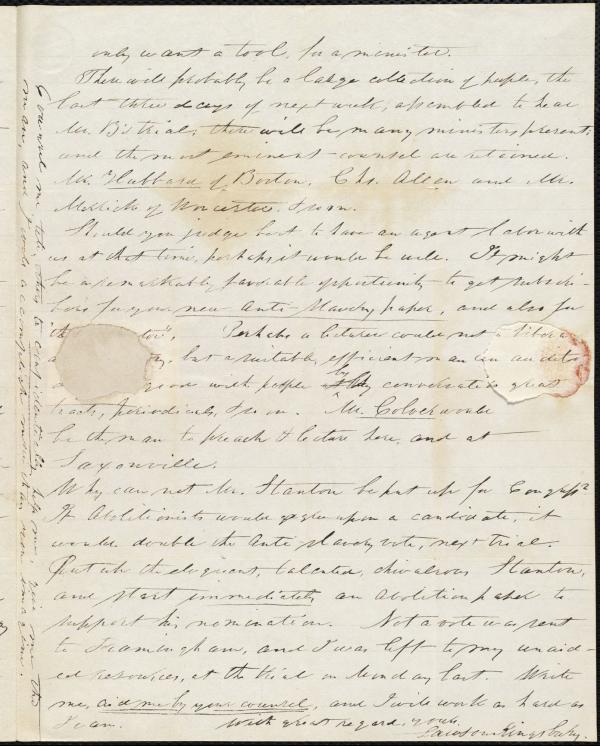 only want a tool, for a minister.
There will probably be a large collection of people, the
last three days of next week, assembled to hear
Mr. B's trial; there will be many ministers present;
and the most eminent counsel are retained.
Mr. Hubbard of Boston, Chs. Allen and Mr.
Merrick of Worcester, & so on.
Should you judge best to have an agent labor with
us at that time, perhaps it would be well. It might
be a remarkably favorable opportunity to get subscri-
bers for your new Anti-Slavery paper, and also for
Perhaps a lecturer could not
but a suitable, efficient man can
good with people by conversation, great
tracts, periodicals, & so on. Mr. Colver would
be the man to preach & lecture here, and at
Saxonville.
Why can not Mr. Stanton be put up for Congress?
If Abolitionists would agree upon a candidate, it
would double the Anti Slavery vote, next trial.
Put up the eloquent, talented, chivalrous Stanton,
and start immediately an abolition paper to
support his nomination. Not a vote was sent
to Framingham, and I was left to my unaid-
ed resources, at the trial on Monday last. Write
me, aid me by your counsel, and I will work as hard as
I can. With great regard, yours,
Lawson Kingsbury.
Counsel me, tell me
man, and I could accomplish more than you imagine.